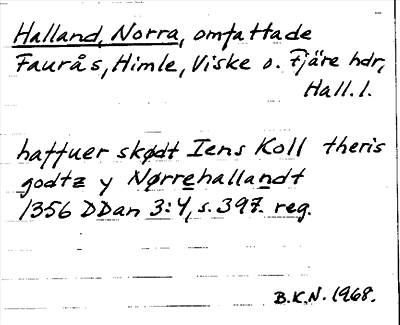 Halland, Norra, omfattade
Faurås, Himle, Viske o. Fjäre hdr,
Hall. l.
haffuer skødt Iens Koll theris
godtz y Nørrehallandt
1356 DDan 3:4, s. 397. reg.
B.K.N. 1968.